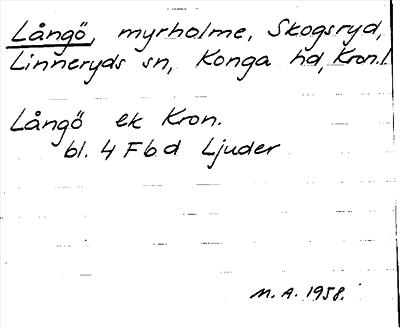 Långö, myrholme, Skogsryd,
Linneryds sn, Konga hd, Kron.l.
Långö ek Kron.
bl. 4 F b d Ljuder
M. A. 1958.